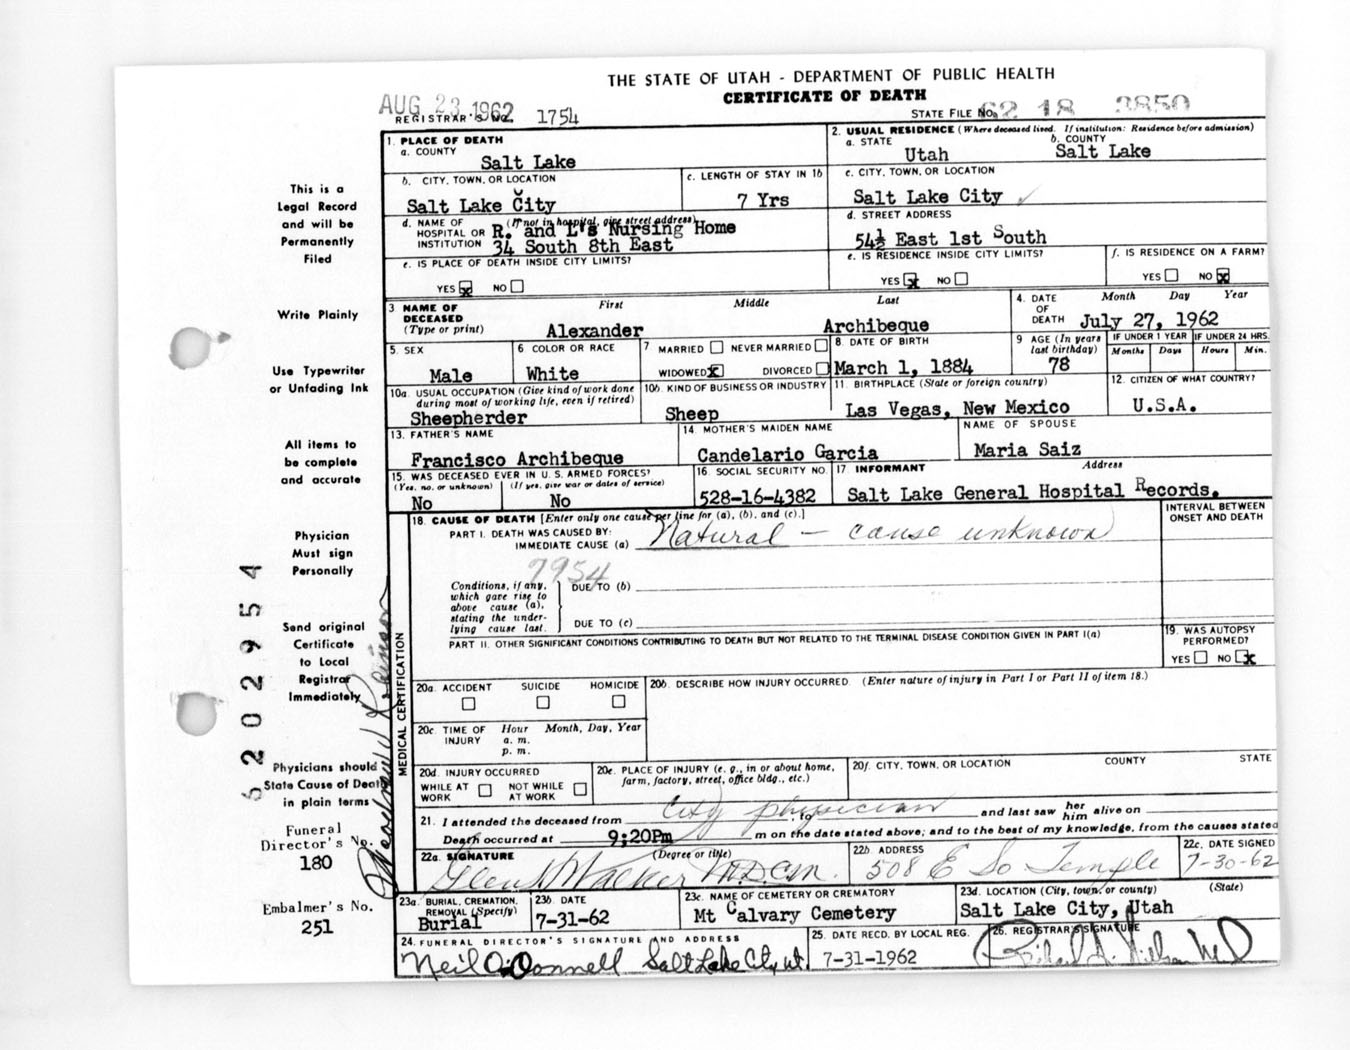 THE STATE OF UTAH - DEPARTMENT OF PUBLIC HEALTH
CERTIFICATE OF DEATH
AUG 23 1962
REGISTRAR'S NO. 1754
STATE FILE NO. 62 18 3850
1. PLACE OF DEATH
a. COUNTY
Salt Lake
2. USUAL RESIDENCE (Where deceased lived. If institution: Residence before admission)
a. STATE b. COUNTY
Utah Salt Lake
b. CITY, TOWN, OR LOCATION
Salt Lake City
c. LENGTH OF STAY IN 1b
7 Yrs
c. CITY, TOWN, OR LOCATION
Salt Lake City
d. NAME OF (If not in hospital, give street address)
HOSPITAL OR R. and L's Nursing Home
INSTITUTION 34 South 8th East
d. STREET ADDRESS
54½ East 1st South
e. IS PLACE OF DEATH INSIDE CITY LIMITS?
YES x NO
e. IS RESIDENCE INSIDE CITY LIMITS?
YES x NO
f. IS RESIDENCE ON A FARM?
YES NO x
3 NAME OF DECEASED
(Type or print)
First Middle Last
Alexander Archibeque
4. DATE OF DEATH
Month Day Year
July 27, 1962
5. SEX
Male
6 COLOR OR RACE
White
7 MARRIED NEVER MARRIED
WIDOWED x DIVORCED
8. DATE OF BIRTH
March 1, 1884
9 AGE (In years last birthday)
78
IF UNDER 1 YEAR
Months Days
IF UNDER 24 HRS.
Hours Min.
10a. USUAL OCCUPATION (Give kind of work done
during most of working life, even if retired)
Sheepherder
10b. KIND OF BUSINESS OR INDUSTRY
Sheep
11. BIRTHPLACE (State or foreign country)
Las Vegas, New Mexico
12. CITIZEN OF WHAT COUNTRY?
U.S.A.
13. FATHER'S NAME
Francisco Archibeque
14. MOTHER'S MAIDEN NAME
Candelario Garcia
NAME OF SPOUSE
Maria Saiz
15. WAS DECEASED EVER IN U. S. ARMED FORCES?
(Yes, no, or unknown) (If yes, give war or dates of service)
No No
16. SOCIAL SECURITY NO.
528-16-4382
17. INFORMANT Address
Salt Lake General Hospital Records.
MEDICAL CERTIFICATION
18. CAUSE OF DEATH [Enter only one cause per line for (a), (b), and (c).]
INTERVAL BETWEEN
ONSET AND DEATH
PART I. DEATH WAS CAUSED BY:
IMMEDIATE CAUSE (a) Natural - cause unknown
7954
Conditions, if any,
which gave rise to
above cause (a),
stating the under-
lying cause last.
DUE TO (b)
DUE TO (c)
PART II. OTHER SIGNIFICANT CONDITIONS CONTRIBUTING TO DEATH BUT NOT RELATED TO THE TERMINAL DISEASE CONDITION GIVEN IN PART I(a)
19. WAS AUTOPSY
PERFORMED?
YES NO x
20a. ACCIDENT SUICIDE HOMICIDE
20b. DESCRIBE HOW INJURY OCCURRED. (Enter nature of injury in Part I or Part II of item 18.)
20c. TIME OF INJURY
Hour Month, Day, Year
a. m.
p. m.
20d. INJURY OCCURRED
WHILE AT WORK NOT WHILE AT WORK
20e. PLACE OF INJURY (e. g., in or about home,
farm, factory, street, office bldg., etc.)
20f. CITY, TOWN, OR LOCATION COUNTY STATE
21. I attended the deceased from City physician, to and last saw her him alive on
Death occurred at 9:20Pm m on the date stated above; and to the best of my knowledge, from the causes stated
22a. SIGNATURE (Degree or title)
Glen Walker M.D.C.M.
22b. ADDRESS
508 E So Temple
22c. DATE SIGNED
7-30-62
23a. BURIAL, CREMATION,
REMOVAL (Specify)
Burial
23b. DATE
7-31-62
23c. NAME OF CEMETERY OR CREMATORY
Mt Calvary Cemetery
23d. LOCATION (City, town, or county) (State)
Salt Lake City, Utah
24. FUNERAL DIRECTOR'S SIGNATURE AND ADDRESS
Neil O'Donnell Salt Lake City, ut.
25. DATE RECD. BY LOCAL REG.
7-31-1962
26. REGISTRAR'S SIGNATURE
This is a
Legal Record
and will be
Permanently
Filed
Write Plainly
Use Typewriter
or Unfading Ink
All items to
be complete
and accurate
Physician
Must sign
Personally
Send original
Certificate
to Local
Registrar
Immediately
Physicians should
State Cause of Death
in plain terms
Funeral
Director's No.
180
Embalmer's No.
251
6202954